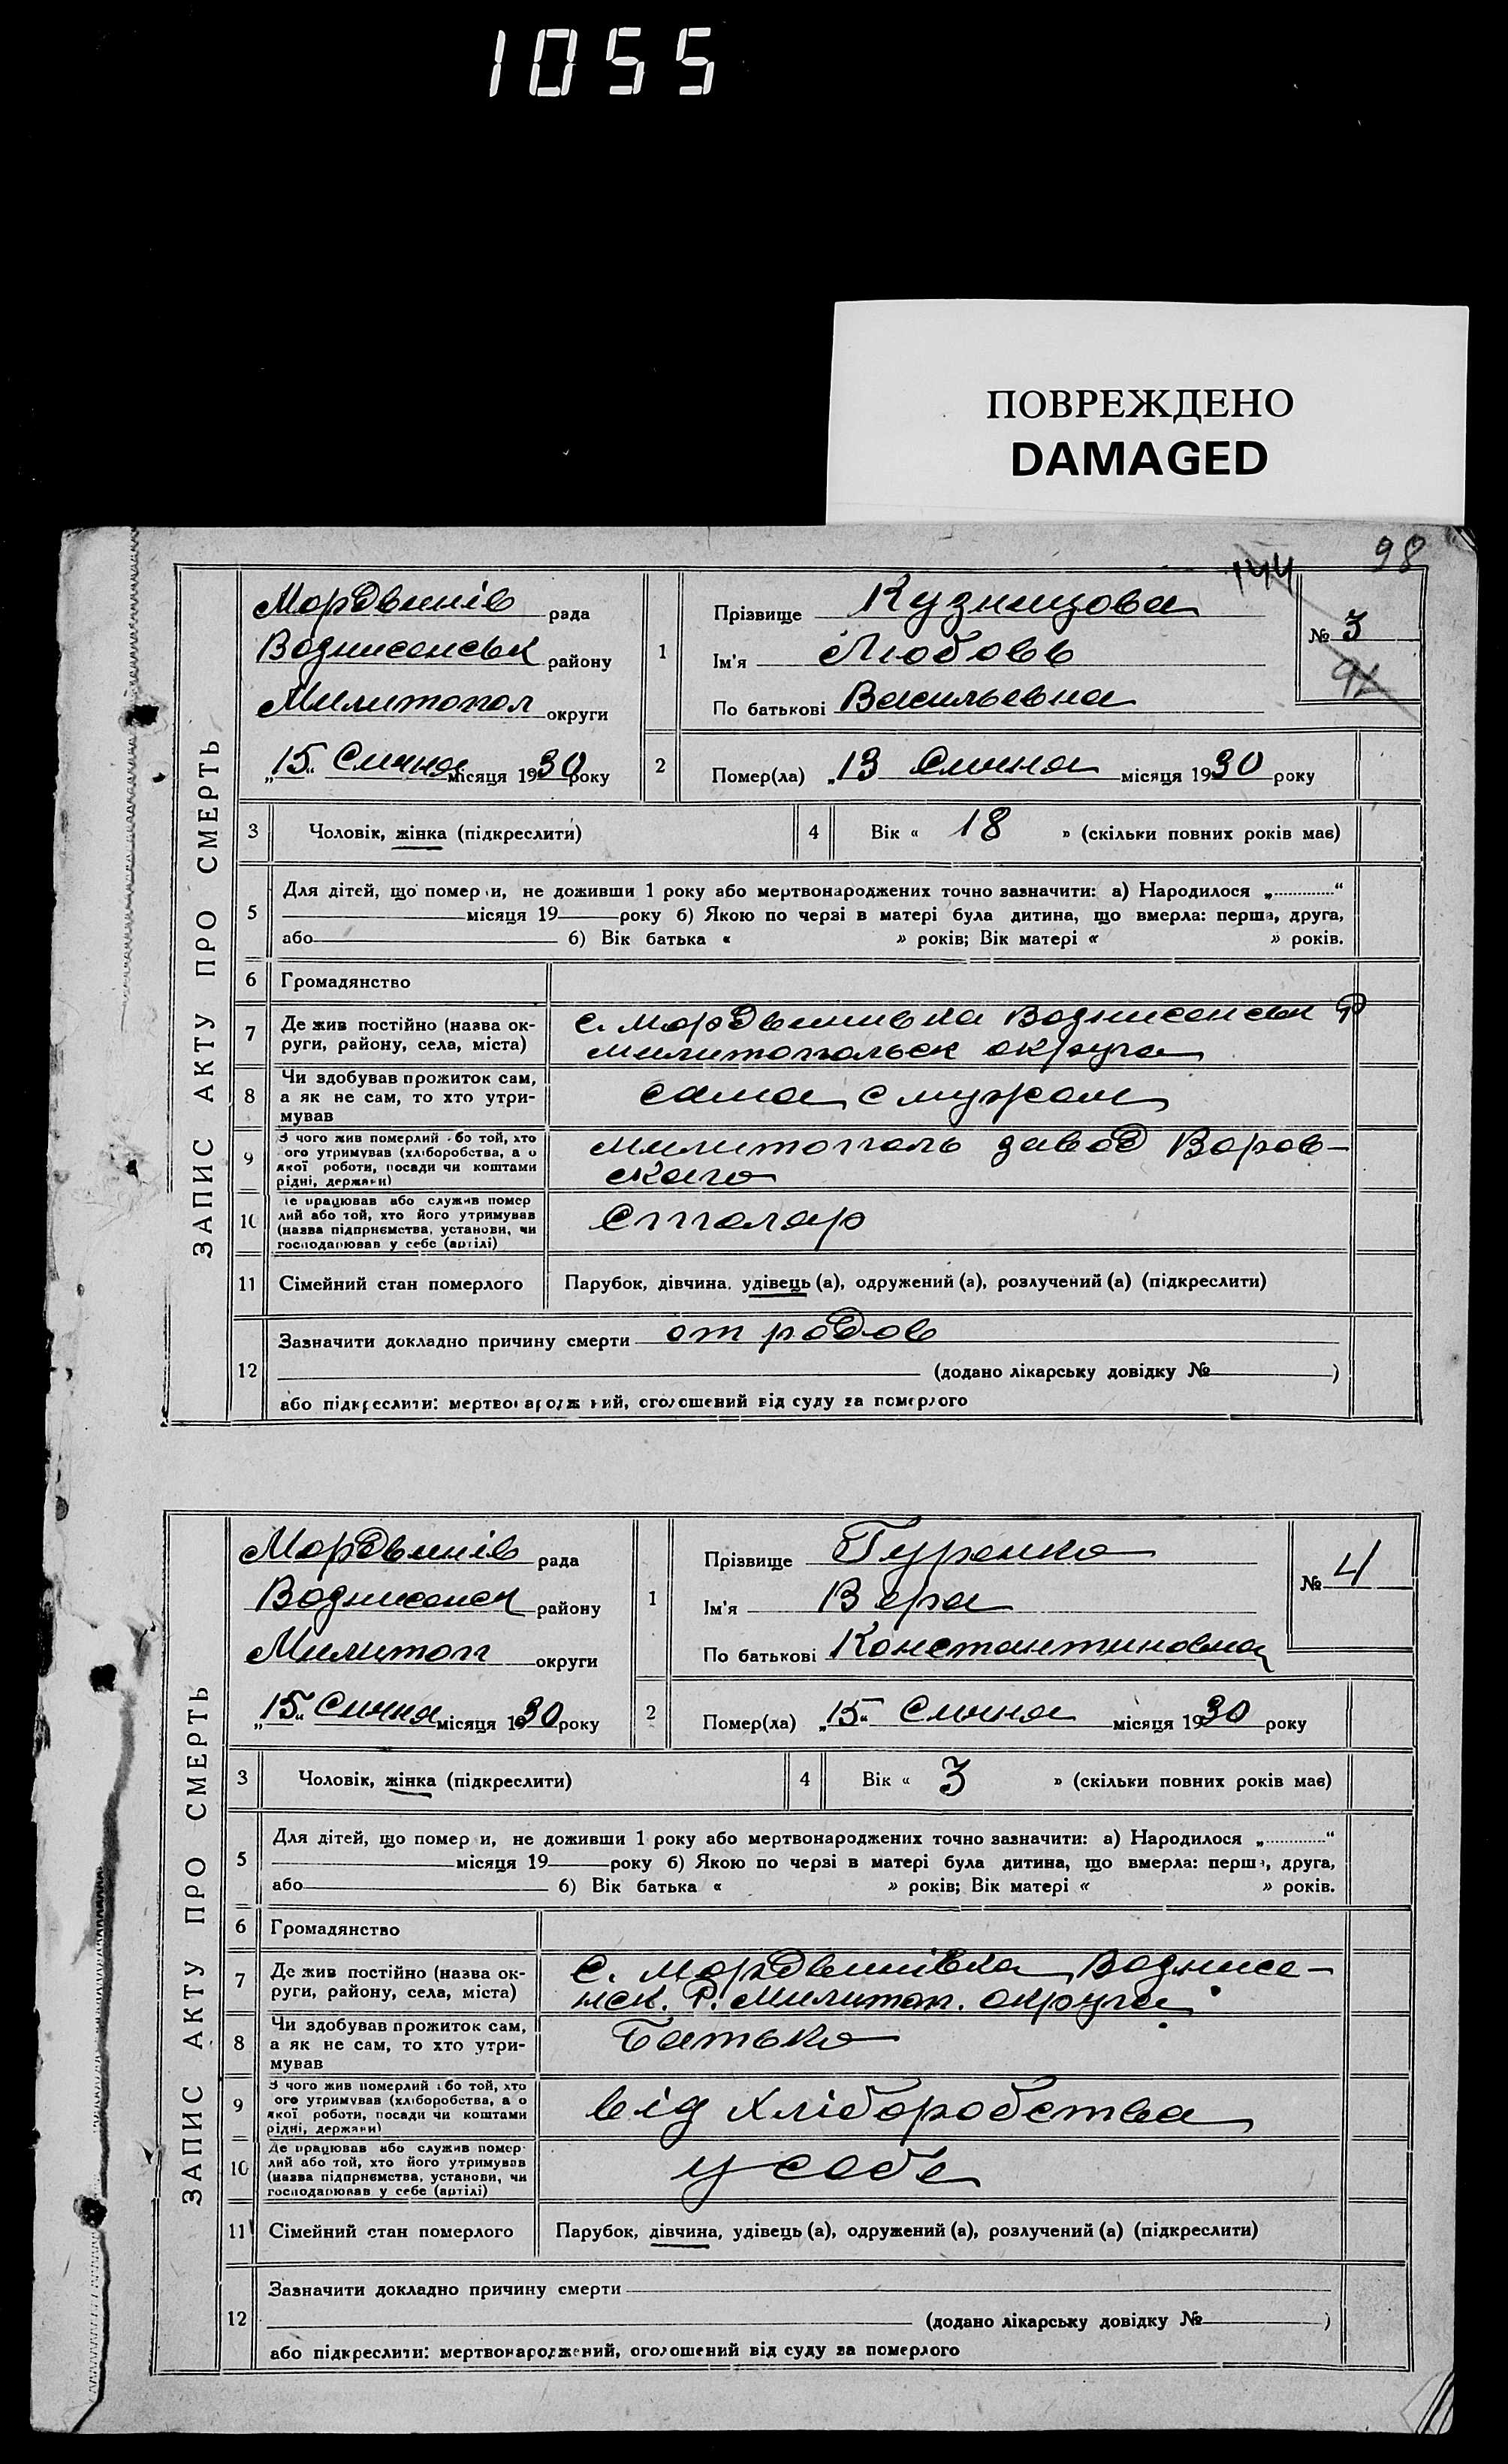 1055
ПОВРЕЖДЕНО
DAMAGED
98
144
ЗАПИС АКТУ ПРО СМЕРТЬ
Мордвинів рада
Вознисенськ району
Милитопол округи
„15“ Сичня місяця 1930 року
1
Прізвище Кузницова
Ім'я Любовь
По батькові Васильевна
№ 3
92
2 Помер(ла) „13 Сична місяця 1930 року
3 Чоловік, жінка (підкреслити)
4 Вік « 18 » (скільки повних років має)
5 Для дітей, що померли, не доживши 1 року або мертвонароджених точно зазначити: а) Народилося „............“
місяця 19 року б) Якою по черзі в матері була дитина, що вмерла: перша, друга,
або 6) Вік батька « » років; Вік матері « » років.
6 Громадянство
7 Де жив постійно (назва ок-
руги, району, села, міста)
с. Мордвинивка Вознисенськ Р
милитопольск округа
8 Чи здобував прожиток сам,
а як не сам, то хто утри-
мував
сама с мужом
9 З чого жив померлий або той, хто
ого утримував (хліборобства, а о
якої роботи, посади чи коштами
рідні, держави)
милитополь завод Воров-
скаго
10 Де працював або служив помер
лий або той, хто його утримував
(назва підприємства, установи, чи
господарював у себе (артілі)
Столяр
11 Сімейний стан померлого Парубок, дівчина, удівець (а), одружений (а), розлучений (а) (підкреслити)
12 Зазначити докладно причину смерти от родов
(додано лікарську довідку № )
або підкреслити: мертвонароджений, оголошений від суду за померлого
ЗАПИС АКТУ ПРО СМЕРТЬ
Мордвинів рада
Вознисенск району
Милитоп округи
„15“ Сичня місяця 1930 року
1
Прізвище Гуренко
Ім'я Вера
По батькові Константиновна
№ 4
2 Помер(ла) „15“ Сична місяця 1930 року
3 Чоловік, жінка (підкреслити)
4 Вік « 3 » (скільки повних років має)
5 Для дітей, що померли, не доживши 1 року або мертвонароджених точно зазначити: а) Народилося „............“
місяця 19 року б) Якою по черзі в матері була дитина, що вмерла: перша, друга,
або 6) Вік батька « » років; Вік матері « » років.
6 Громадянство
7 Де жив постійно (назва ок-
руги, району, села, міста)
С. Мордвинівка Вознисе-
нск. Р. Милитоп. округа
8 Чи здобував прожиток сам,
а як не сам, то хто утри-
мував
Батько
9 З чого жив померлий або той, хто
ого утримував (хліборобства, а о
якої роботи, посади чи коштами
рідні, держави)
від хліборобства
10 Де працював або служив помер-
лий або той, хто його утримував
(назва підприємства, установи, чи
господарював у себе (артілі)
у себе
11 Сімейний стан померлого Парубок, дівчина, удівець (а), одружений (а), розлучений (а) (підкреслити)
12 Зазначити докладно причину смерти
(додано лікарську довідку № )
або підкреслити: мертвонароджений, оголошений від суду за померлого